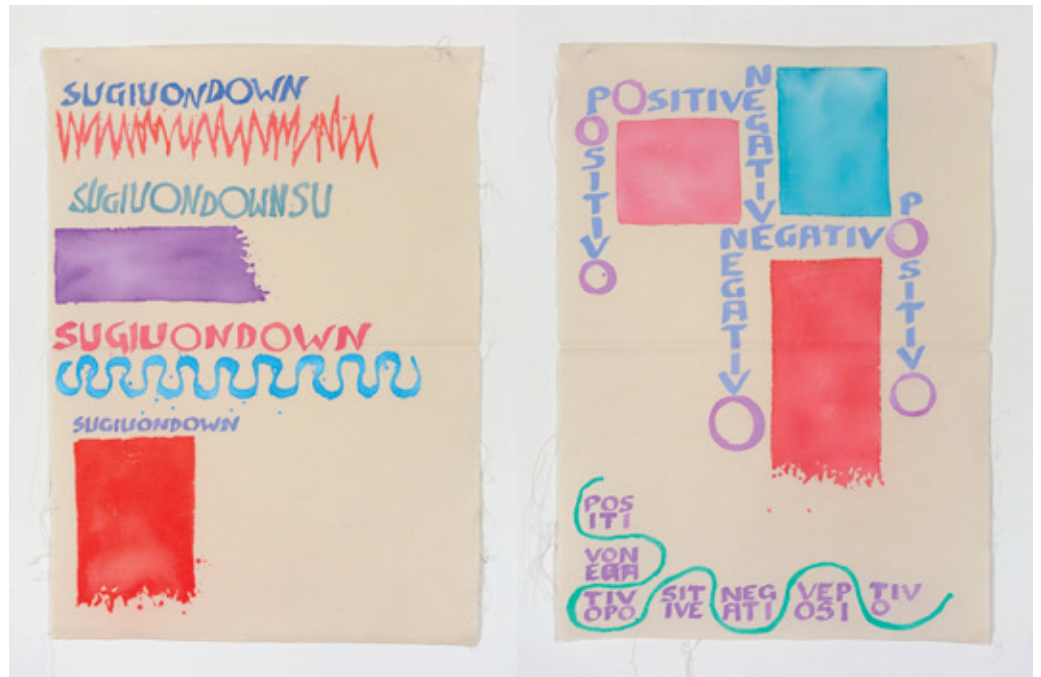 SUGIUONDOWN
SUGIUONDOWNSU
SUGIUONDOWN
SUGIUONDOWN
POSITIVE
POSITIVO
NEGATIVE
NEGATIVO
NEGATIVO
POSITIVO
POS
ITI
VON
EGA
TIV
OPO
SIT
IVE
NEG
ATI
VEP
OSI
TIV
O